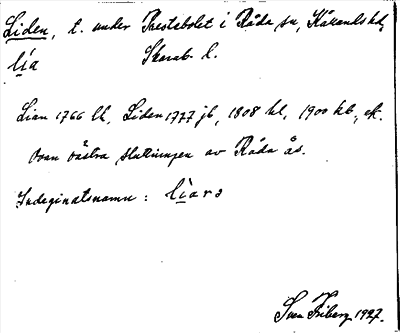 Liden, t. under Prestabolet i Råda sn, Kållands hd,
lìa Skarab. l.
Lian 1766 lh, Liden 1777 jb, 1808 hl, 1900 kb, ek.
Ovan västra sluttningen av Råda ås.
Indeginatsnamn: lìars
Sven Friberg 1927.